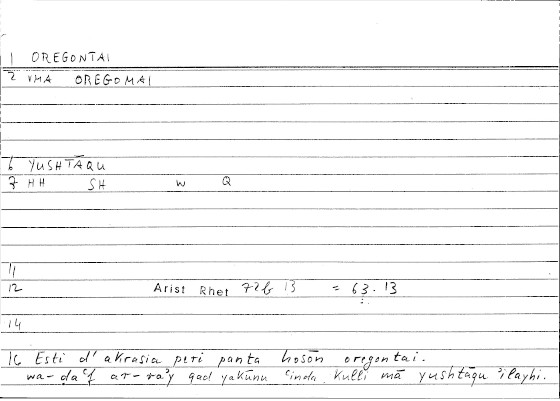 1 OREGONTAI
2 VMA OREGOMAI
6 YUSHTĀQU
7 HH SH W Q
11
12 Arist Rhet 72b 13 = 63.13
14
16 Esti d' akrasia peri panta hosōn oregontai.
wa-ḍaʿf ar-ra'y qad yakūnu ʿinda kulli mā yushtāqu 'ilayhi.